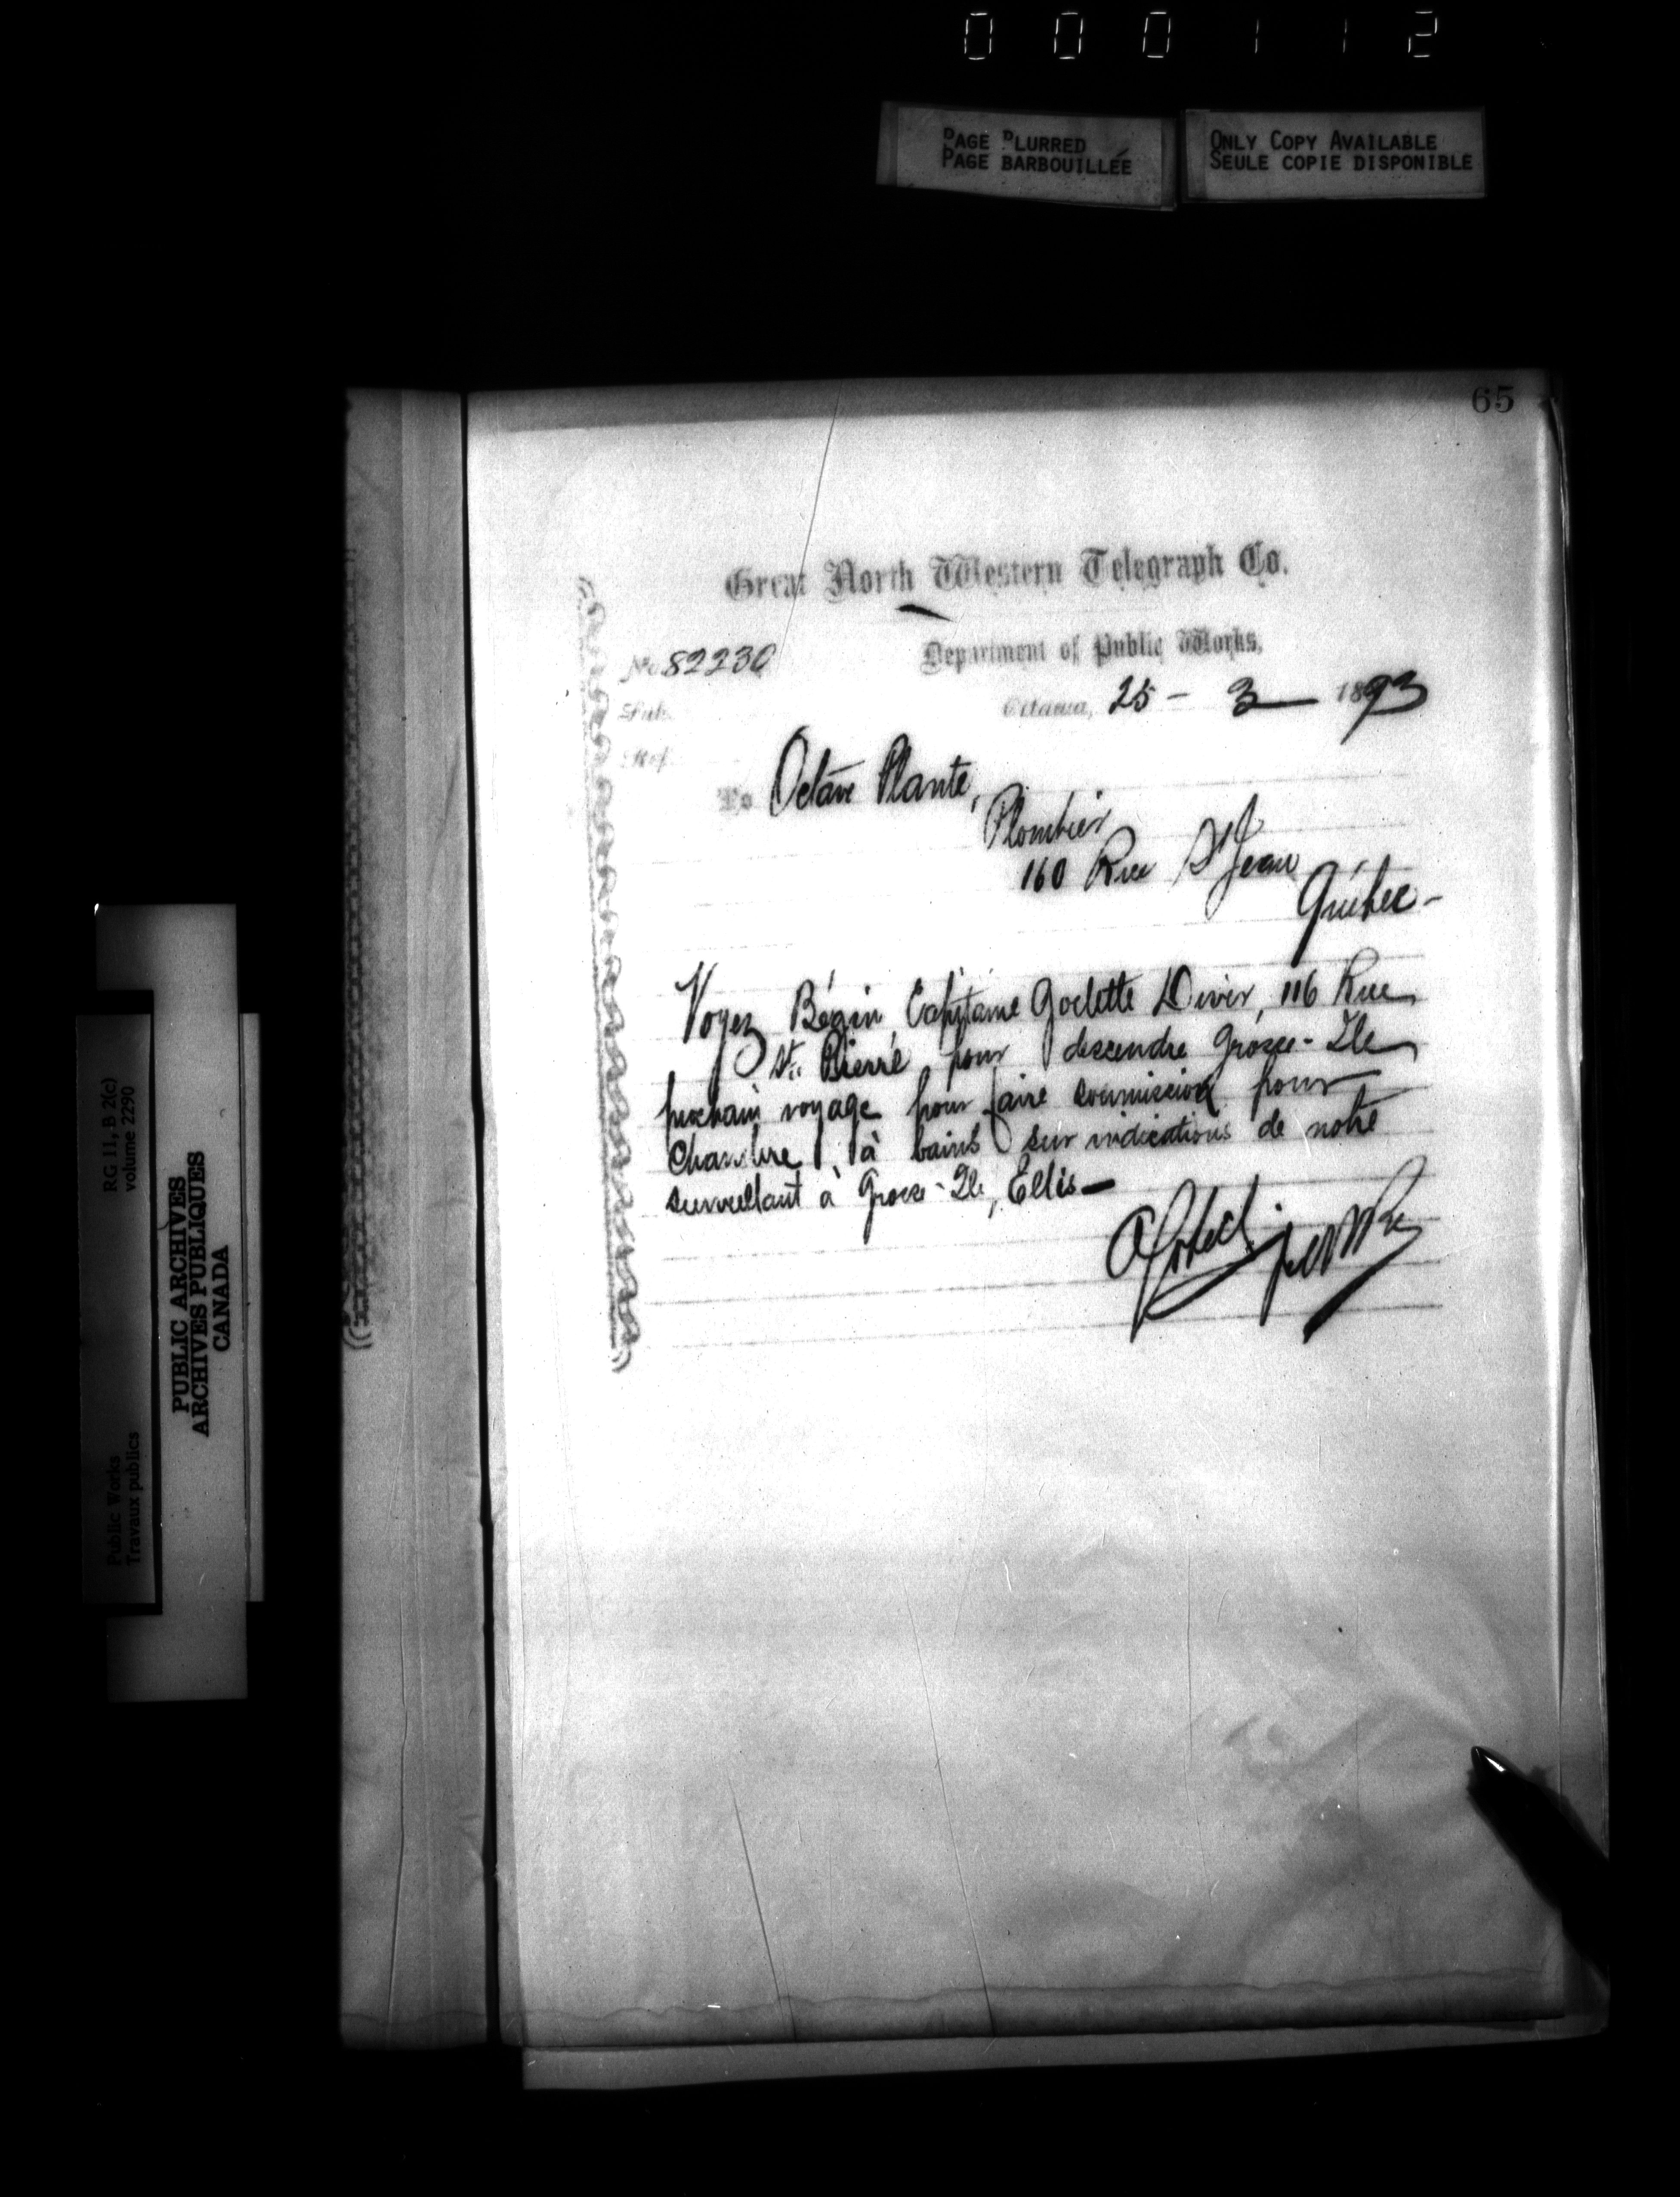 000112
PAGE BLURRED
PAGE BARBOUILLÉE
ONLY COPY AVAILABLE
SEULE COPIE DISPONIBLE
65
Great North Western Telegraph Co.
Department of Public Works,
No. 82230
Sub.
Ottawa, 25 - 3 - 1893
Ref.
To Octave Plante,
Plombier
160 Rue St Jean
Québec -
Voyez Bégin, Capitaine Goelette Diver, 116 Rue
St. Pierre pour descendre Grosse-Ile
prochain voyage pour faire soumission pour
Chambre à bains sur indications de notre
surveillant à Grosse-Ile, Ellis -
RG 11, B 2(c)
volume 2290
Public Works
Travaux publics
PUBLIC ARCHIVES
ARCHIVES PUBLIQUES
CANADA